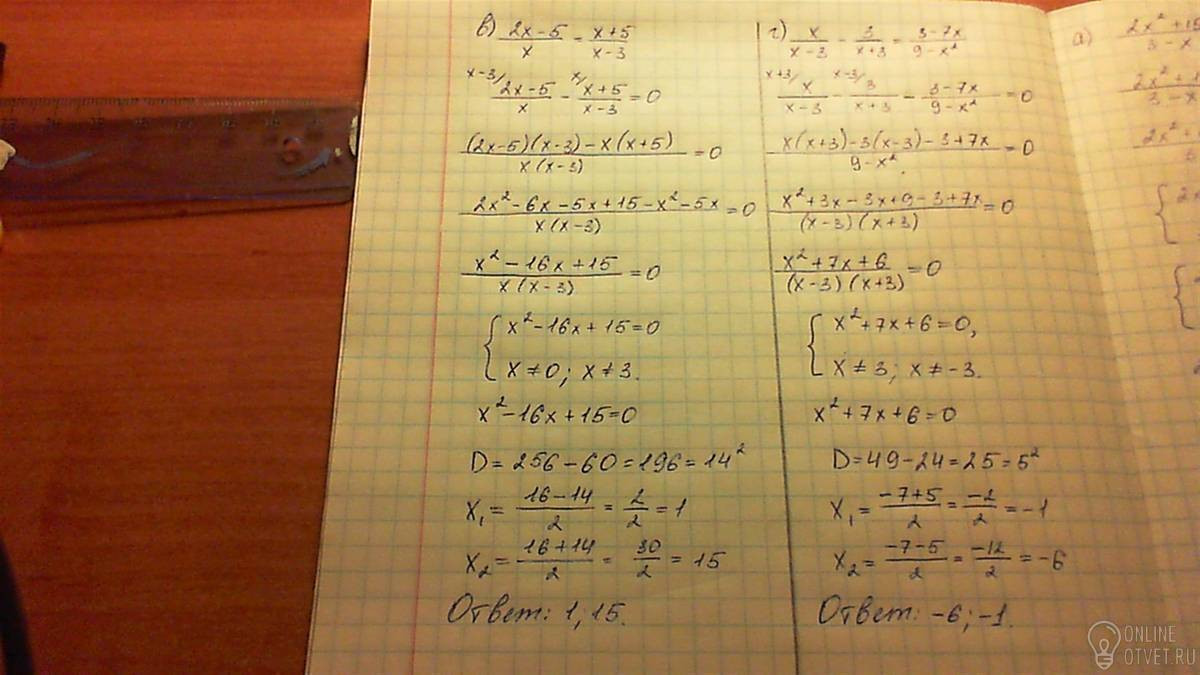 в) (2x-5)/x = (x+5)/(x-3)
x-3/ (2x-5)/x - x/ (x+5)/(x-3) = 0
((2x-5)(x-3)-x(x+5))/(x(x-3)) = 0
(2x²-6x-5x+15-x²-5x)/(x(x-3)) = 0
(x²-16x+15)/(x(x-3)) = 0
{ x²-16x+15=0
x≠0; x≠3.
x²-16x+15=0
D=256-60=196=14²
x₁=(16-14)/2=2/2=1
x₂=(16+14)/2=30/2=15
Ответ: 1; 15.
г) x/(x-3) - 3/(x+3) = (3-7x)/(9-x²)
x+3/ x/(x-3) - x-3/ 3/(x+3) - (3-7x)/(9-x²) = 0
(x(x+3)-3(x-3)-3+7x)/(9-x²) = 0
(x²+3x-3x+9-3+7x)/((x-3)(x+3)) = 0
(x²+7x+6)/((x-3)(x+3)) = 0
{ x²+7x+6=0,
x≠3; x≠-3.
x²+7x+6=0
D=49-24=25=5²
x₁=(-7+5)/2=-2/2=-1
x₂=(-7-5)/2=-12/2=-6
Ответ: -6; -1.
а)
ONLINE
OTVET.RU